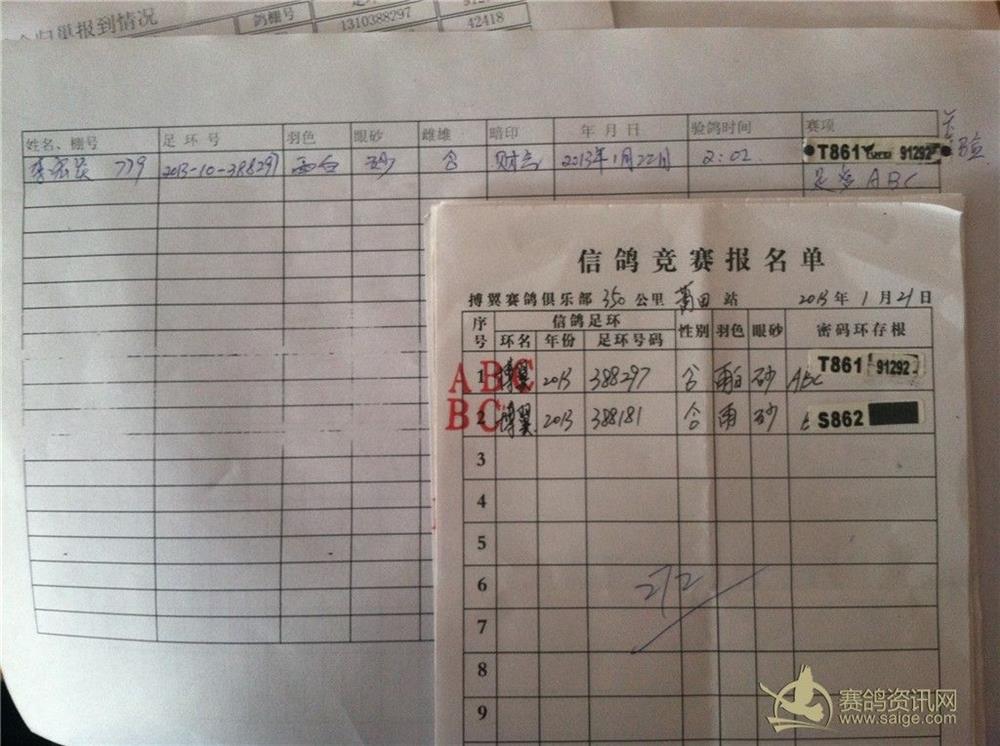 归巢报到情况
鸽棚号
1310388297
42418
姓名、棚号 足环号 羽色 眼砂 雌雄 暗印 年月日 验鸽时间 赛项
779 2013-10-388297 雨白 砂 2013年1月22日 2:02 T861 91292 验
ABC
信鸽竞赛报名单
搏翼赛鸽俱乐部 350 公里 莆田 站 2013年1月21日
序号 信鸽足环 性别 羽色 眼砂 密码环存根
环名 年份 足环号码
ABC 1 搏翼 2013 388297 雨白 砂 ABC T861 91292
BC 2 搏翼 2013 388181 雨 砂 S862
3
4
5
6
2/2
7
8
9
赛鸽资讯网
www.saige.com